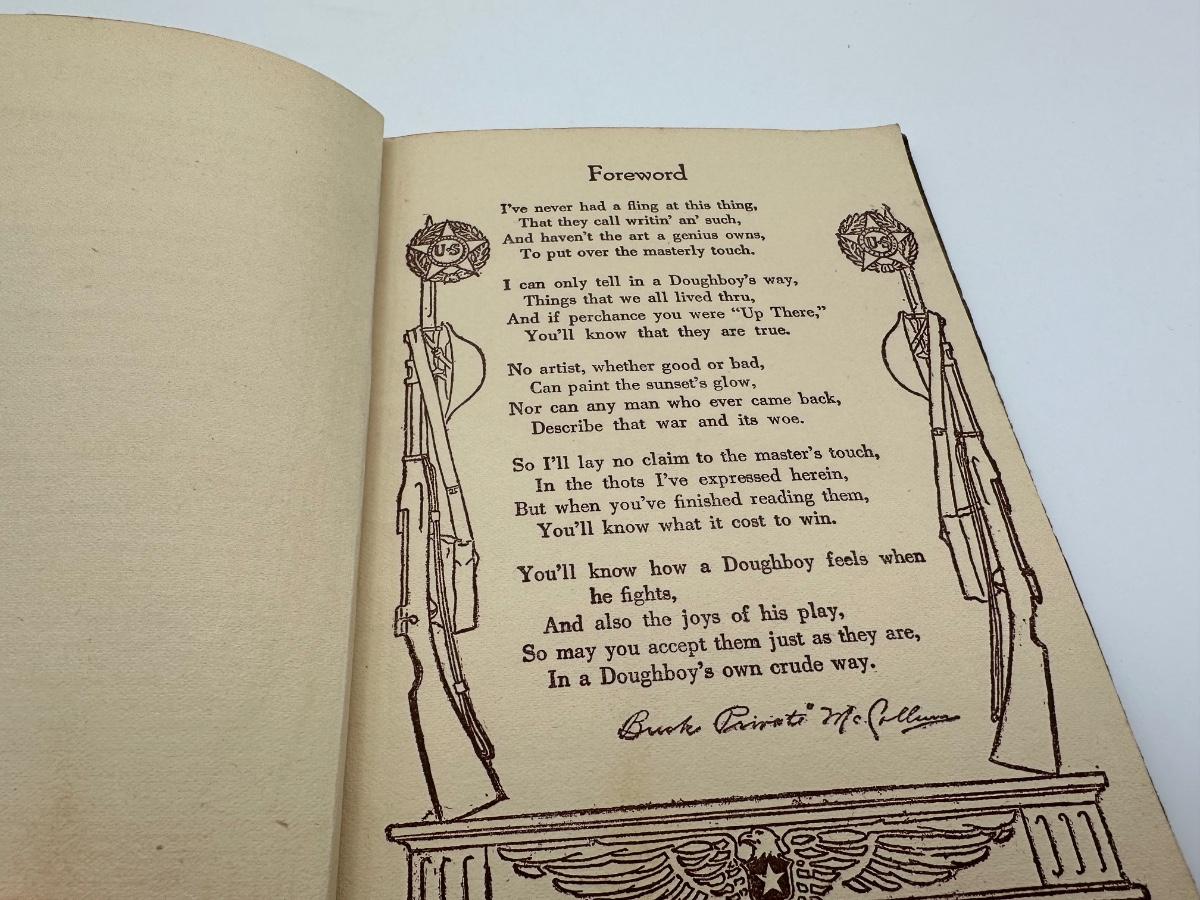 Foreword
I've never had a fling at this thing,
That they call writin' an' such,
And haven't the art a genius owns,
To put over the masterly touch.
I can only tell in a Doughboy's way,
Things that we all lived thru,
And if perchance you were "Up There,"
You'll know that they are true.
No artist, whether good or bad,
Can paint the sunset's glow,
Nor can any man who ever came back,
Describe that war and its woe.
So I'll lay no claim to the master's touch,
In the thots I've expressed herein,
But when you've finished reading them,
You'll know what it cost to win.
You'll know how a Doughboy feels when
he fights,
And also the joys of his play,
So may you accept them just as they are,
In a Doughboy's own crude way.
"Buck Private" McCollum
U·S
U·S